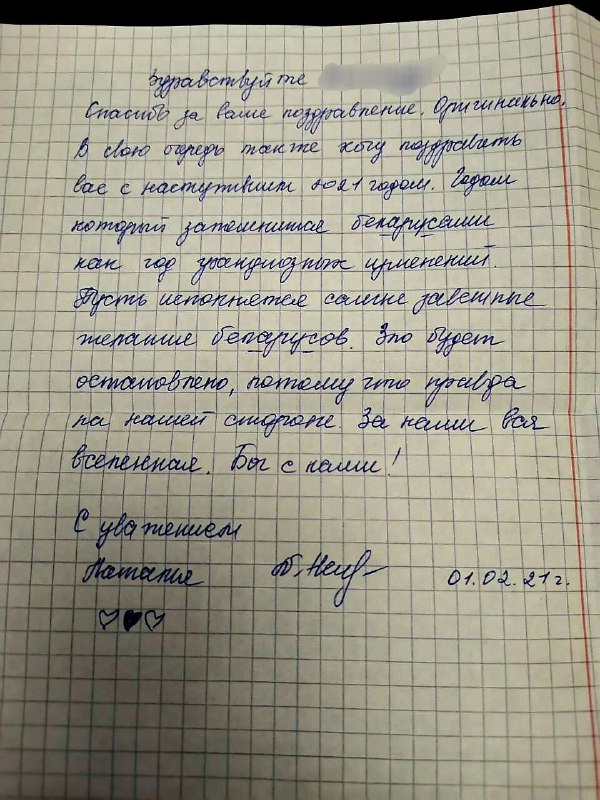 Здравствуйте
Спасибо за ваше поздравление. Оригинально.
В свою очередь также хочу поздравить
вас с наступившим 2021 годом. Годом
который запомнится беларусами
как год грандиозных изменений.
Пусть исполнятся самые заветные
желания беларусов. Зло будет
остановлено, потому что правда
на нашей стороне. За нами вся
вселенная. Бог с нами!
С уважением
Наталья
01.02.21г.